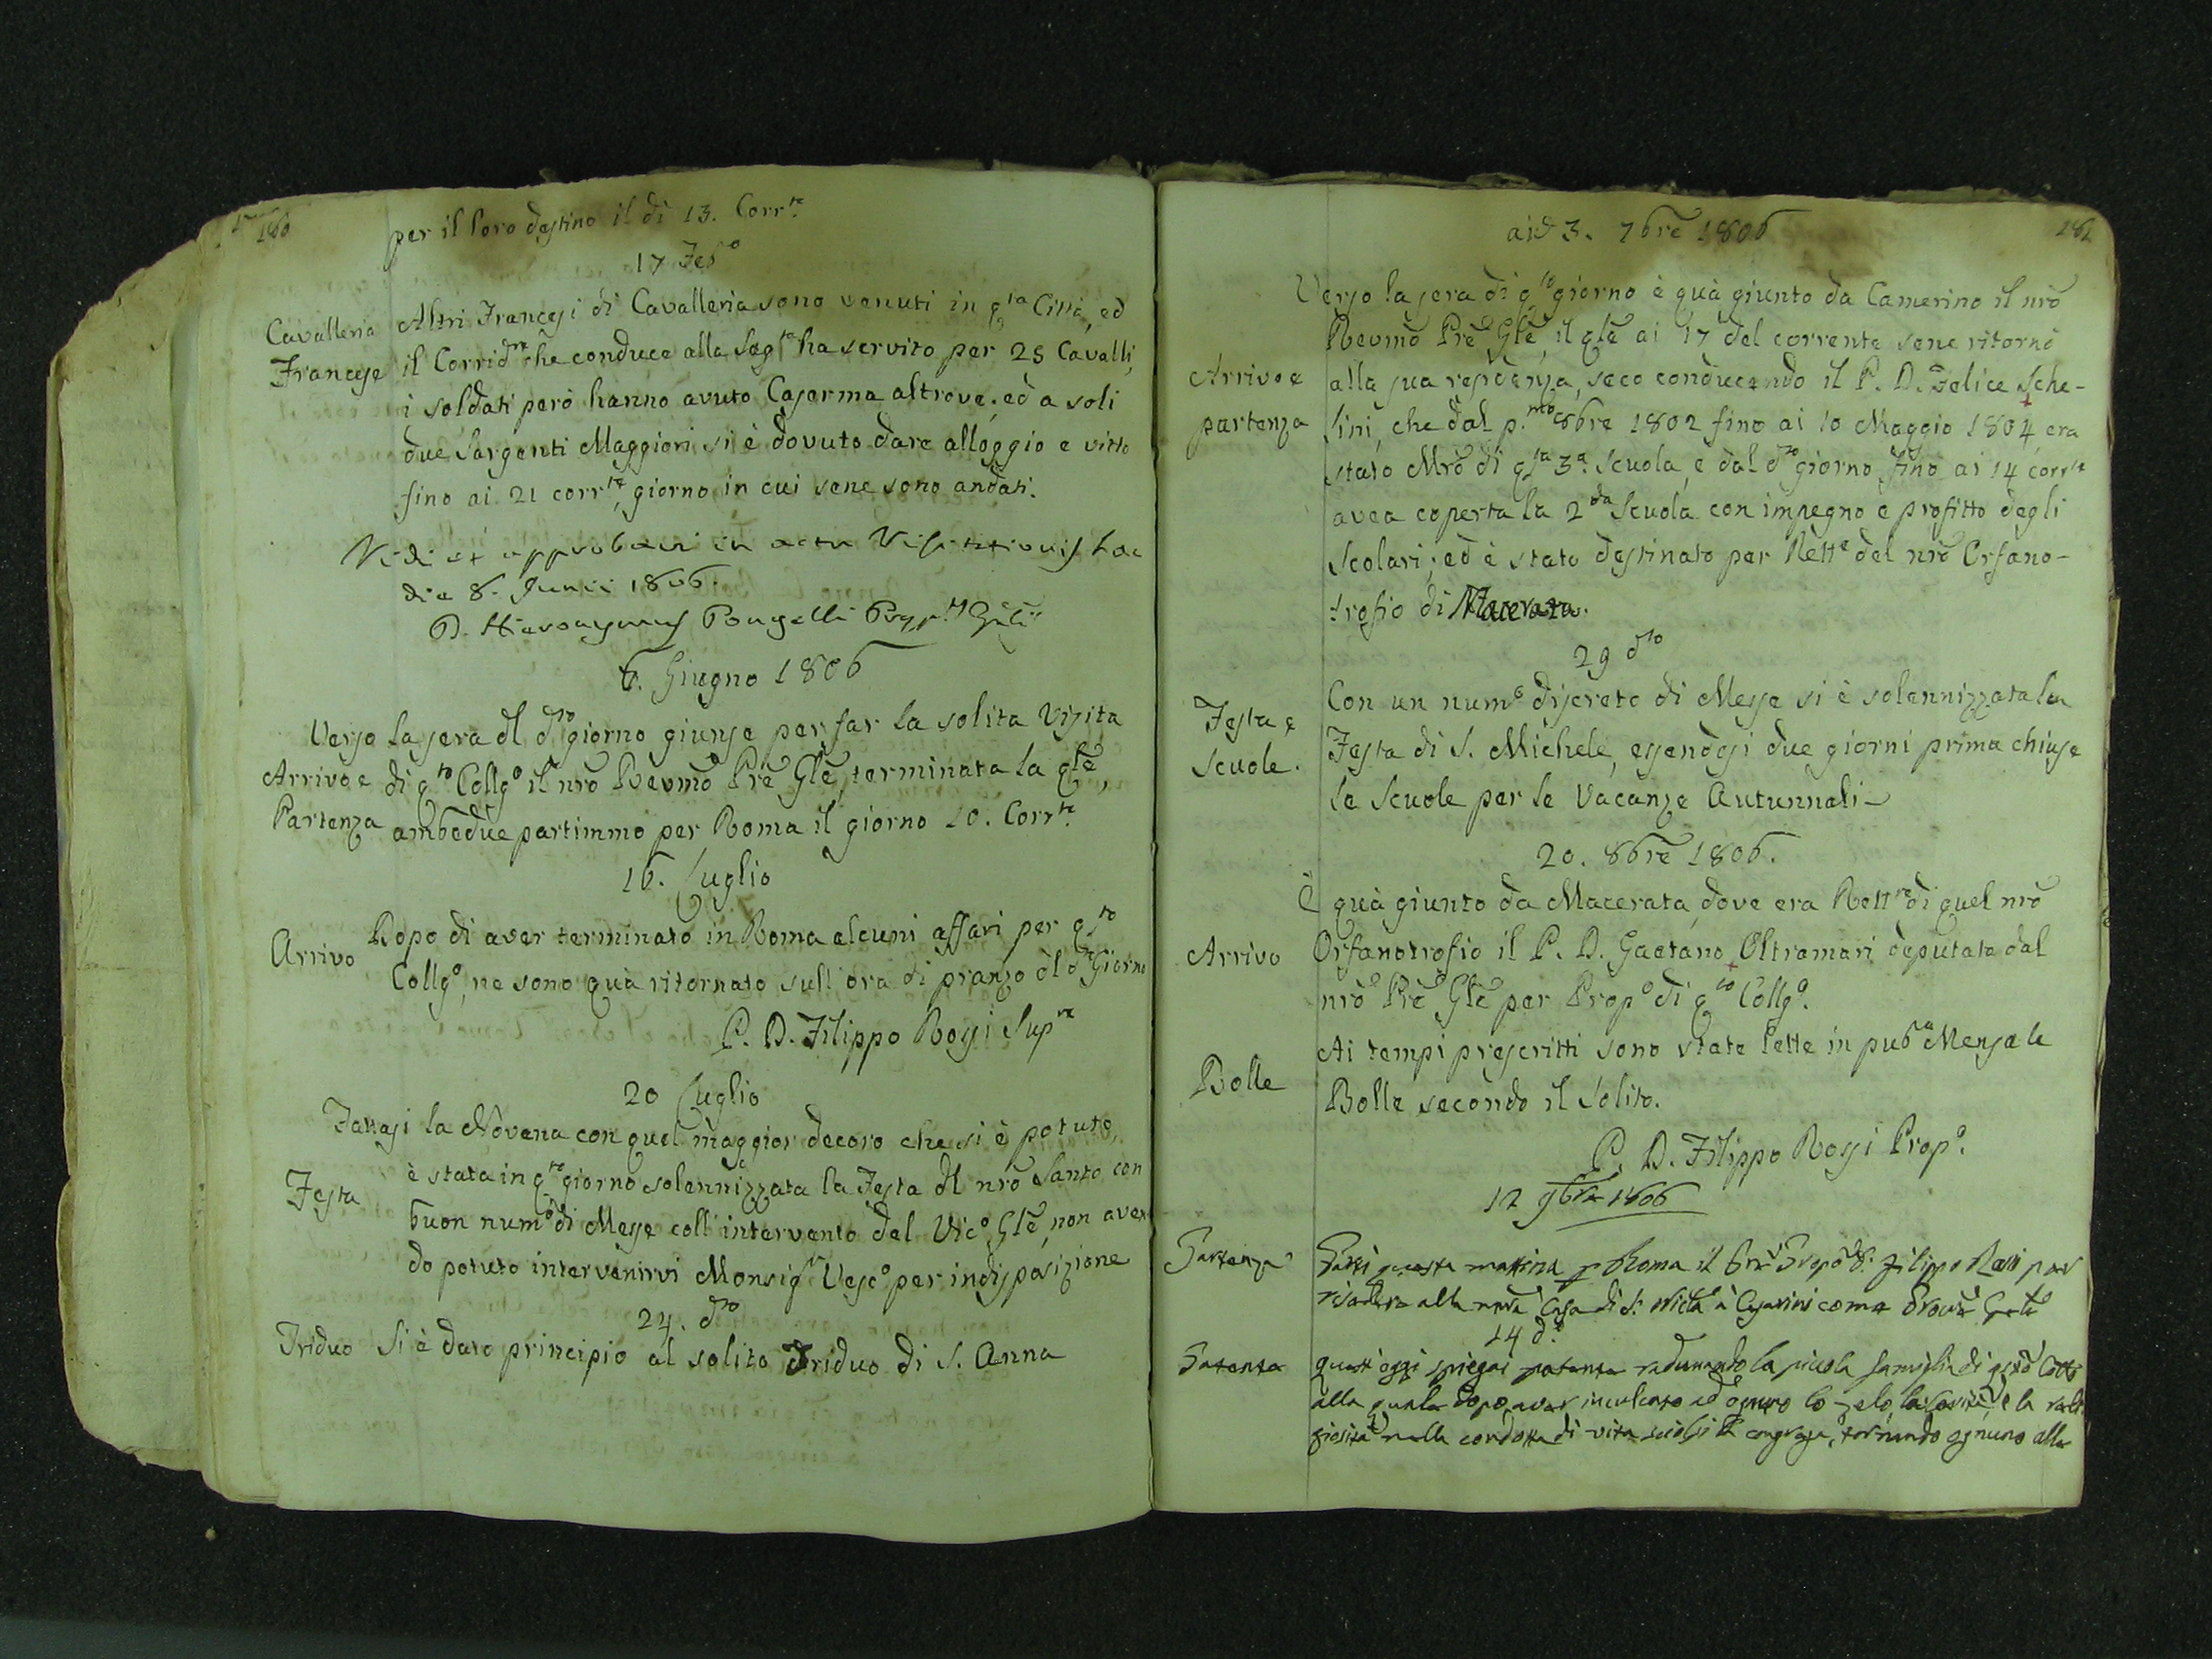 180
per il loro destino il dì 13. Corr.te
17 Feb.o
Cavalleria Francese
Altri Francesi di Cavalleria sono venuti in q.ta Città, ed
il Corrid.re che conduce alla Sag.ta ha servito per 25 Cavalli,
i soldati però hanno avuto Caserma altrove; ed a soli
due Sargenti Maggiori si è dovuto dare alloggio e vitto
fino ai 21 corr.te, giorno in cui sene sono andati.
Vidi et approbavi in actu Visitationis hac
die 8. Junii 1806.
D. Hieronymus Pongelli Prep.tus Gñlis
6. Giugno 1806
Arrivo e Partenza
Verso la sera dl d.to giorno giunse per far la solita Visita
di q.to Collg.o il nrõ Revmõ Prẽ Glẽ, terminata la qlẽ,
ambedue partimmo per Roma il giorno 10. Corr.te
16. Luglio
Arrivo
Dopo di aver terminato in Roma alcuni affari per q.to
Collg.o, ne sono quà ritornato sull'ora di pranzo dl d.to Giorno
P. D. Filippo Rossi Sup.re
20 Luglio
Festa
Fattasi la Novena con quel maggior decoro che si è potuto,
è stata in q.to giorno solennizzata la Festa dl nrõ Santo con
buon num.o di Messe coll'intervento del Vic.o Glẽ, non aven
do potuto intervenirvi Monsig.r Vesc.o per indisposizione
24. d.to
Triduo
Si è dato principio al solito Triduo di S. Anna
181
a id 3. 7brẽ 1806
Arrivo e partenza
Verso la sera di q.to giorno è quà giunto da Camerino il nrõ
Revmõ Prẽ Glẽ, il qlẽ ai 17 del corrente sene ritornò
alla sua residenza, seco conducendo il P. D. Felice Sche-
lini, che dal p.mo 8bre 1802 fino ai 10 Maggio 1804 era
stato Mrõ di q.ta 3.a Scuola, e dal d.to giorno fino ai 14 corr.te
avea coperta la 2.da Scuola con impegno e profitto degli
Scolari; ed è stato destinato per Rett.e del nrõ Orfano-
trofio di Macerata.
29 d.to
Festa e Scuole.
Con un num.o discreto di Messe si è solennizzata la
Festa di S. Michele, essendosi due giorni prima chiuse
le Scuole per le Vacanze Autunnali
20. 8brẽ 1806.
Arrivo
È quà giunto da Macerata, dove era Rett.re di quel nrõ
Orfanotrofio il P. D. Gaetano Oltremari deputato dal
nrõ Prẽ Glẽ per Prop.o di q.to Collg.o.
Bolle
Ai tempi prescritti sono state lette in pub.a Mensa le
Bolle secondo il Solito.
P. D. Filippo Rossi Prop.o
12 9bre 1806
Partenza
Partì questa mattina p Roma il Prẽ Propo D. Filippo Rossi per
risedere alla nrã Casa di S. Niclã a Cesarini come
14 d.o
Patente
quest'oggi spiegai patente radunando la piccola famiglia di Coll.o
alla quale dopo aver inculcato ad ognuno lo zelo, la carità, e la reli-
giosità nella condotta di vita sciolsi la congrega, tornando ognuno alle